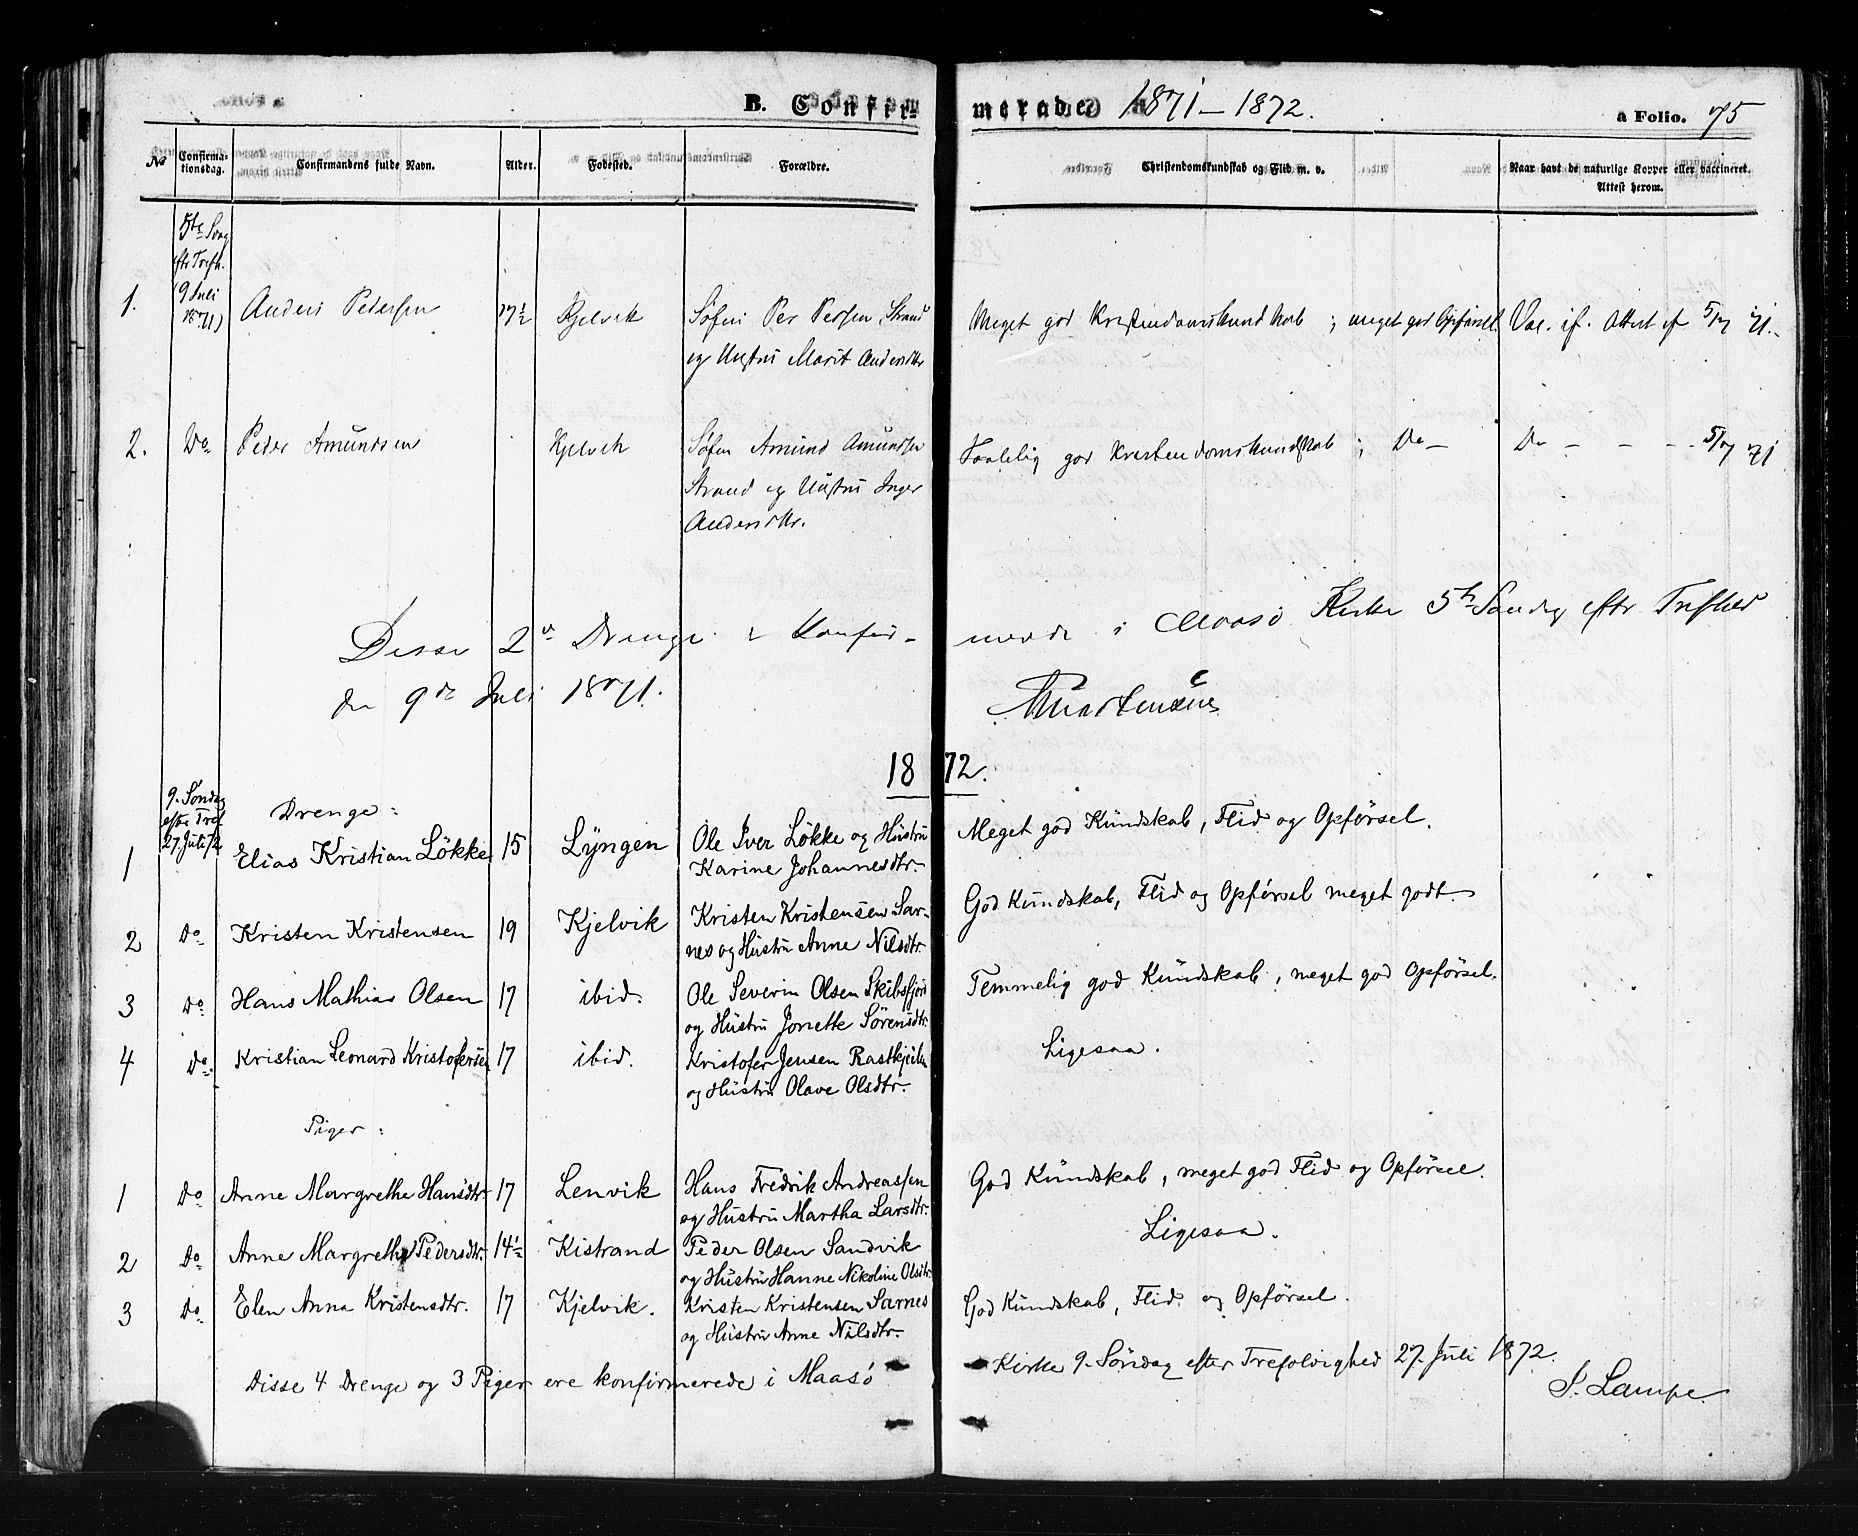 B. Confir- merade 1871 - 1872. a Folio. 75
No Confirma-tionsdag. Confirmandens fulde Navn. Alder. Fødested. Forældre. Christendomskundskab og Flid m. v. Naar havt de naturlige Kopper eller vaccineret. Attest herom.
5te Søng
eftr Trefh.
1. (9 Juli 1871) Anders Pedersen 17½ Kjelvik Søfin Per Persen, Strand Meget god Kristendomskundskab ; meget god Opførsel. Vac. if. Attest af 5/7 71.
og Hustru Marit Andersdtr
2. Do Peder Amundsen Kjelvik Søfin Amund Amundsen Taalelig god Kristendomskundskab ; Do - Do - - - 5/7 71
Strand og Hustru Inger
Andersdtr.
Disse 2de Drenge Konfir- merede i Maasø Kirke 5te Søndag eftr Trefhed
den 9de Juli 1871. Mortensen
1872.
9. Søndag
efter Tref Drenge :
27. Juli 72
1 Elias Kristian Løkke 15 Lyngen Ole Iver Løkke og Hustru Meget god Kundskab, Flid og Opførsel.
Karine Johannesdtr.
2 Do Kristen Kristensen 19 Kjelvik Kristen Kristensen Sar- God Kundskab, Flid og Opførsel meget godt.
nes og Hustru Anne Nilsdtr.
3 Do Hans Mathias Olsen 17 ibid. Ole Severin Olsen Skibsfjord Temmelig god Kundskab, meget god Opførsel.
og Hustru Jonette Sørensdtr.
4 Do Kristian Leonard Kristofersen 17 ibid. Kristofer Jensen Ligesaa.
og Hustru Olave Olsdtr.
Piger :
1 Do Anne Margrethe Hansdtr. 17 Lenvik Hans Fredrik Andreassen God Kundskab, meget god Flid og Opførsel.
og Hustru Martha Larsdtr.
2 Do Anne Margrethe Pedersdtr. 14½ Kistrand Peder Olsen Sandvik Ligesaa.
og Hustru Hanne Nikoline Olsdtr.
3 Do Elen Anna Kristensdtr. 17 Kjelvik. Kristen Kristensen Sarnes God Kundskab, Flid og Opførsel.
og Hustru Anne Nilsdtr.
Disse 4 Drenge og 3 Piger ere konfirmerede i Maasø Kirke 9. Søndag efter Trefoldighed 27. Juli 1872.
S. Lampe